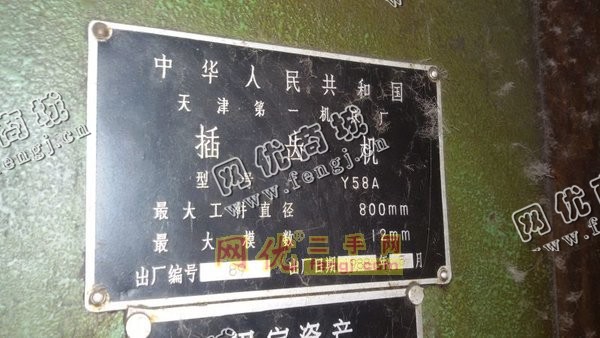 中华人民共和国
天津第一机 厂
插齿机
型号 Y58A
最大工件直径 800mm
最大模数 12mm
出厂编号 8 出厂日期 年 月
固定资产
网优商城
www.fengj.cn
网优商城
www.fengj.cn
网优商城
www.fengj.cn
网优二手网